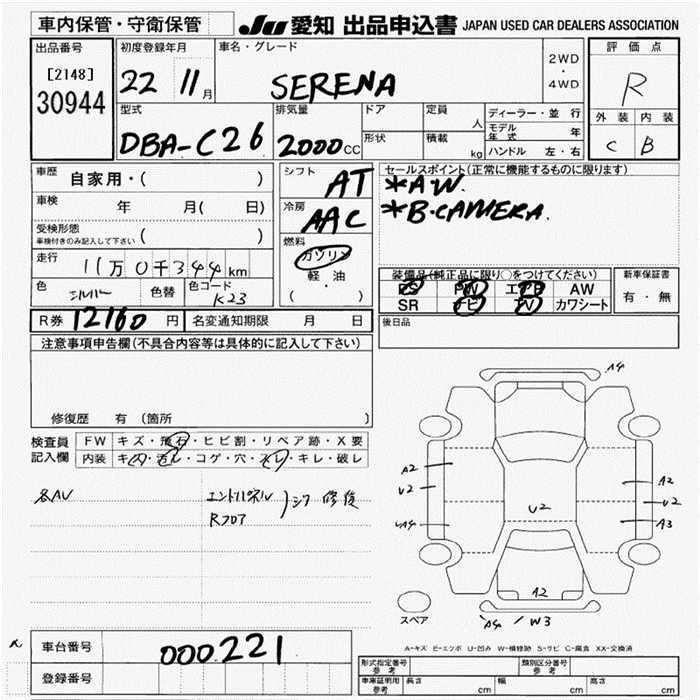 車内保管・守衛保管
JU 愛知 出品申込書 JAPAN USED CAR DEALERS ASSOCIATION
出品番号
[2148]
30944
初度登録年月
22 11月
車名・グレード
SERENA
2WD
・
4WD
評価点
R
外装 内装
C B
型式
DBA-C26
排気量
2000cc
ドア
形状
定員
人
積載
kg
ディーラー・並行
モデル年式 年
ハンドル 左・右
車歴
自家用・( )
車検
年 月( 日)
受検形態
車検付きのみ記入して下さい ( )
走行
11万0千344km
色
シルバー
色替
色コード
K23
シフト
AT
冷房
AAC
燃料
ガソリン
軽・油
( )
セールスポイント(正常に機能するものに限ります)
*AW.
*B・CAMERA.
装備品(純正品に限り○をつけてください)
PS PW エアB AW
SR ナビ TV カワシート
新車保証書
有・無
R券 12160円
名変通知期限 月 日
後日品
注意事項申告欄(不具合内容等は具体的に記入して下さい)
修復歴 有(箇所 )
検査員
記入欄
FW キズ・飛石・ヒビ割・リペア跡・X要
内装 キズ・汚レ・コゲ・穴・スレ・キレ・破レ
各AU
エンドパネル
Rフロア
シワ 修復
A4
A2
U2
A4
U2
A2
U2
A3
A2
A4 / W3
スペア
A-キズ E-エクボ U-凹み W-補修跡 S-サビ C-腐食 XX-交換済
車台番号
000221
登録番号
形式指定番号
参考
類別区分番号
参考
車庫証明用
参考
長さ cm
幅 cm
高さ cm